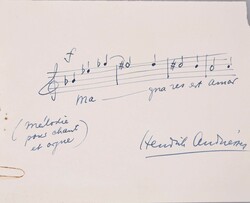 f
Ma — gna res est amor
(Mélodie
pour chant
et orgue)
Hendrik Andriessen